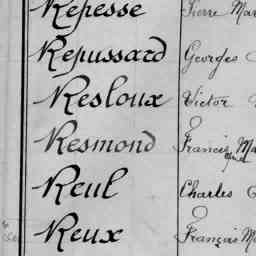 Repesse Pierre Mar
Repussard Georges
Resloux Victor
Resmond Francis Ma
Reul Charles
Reux François Ma